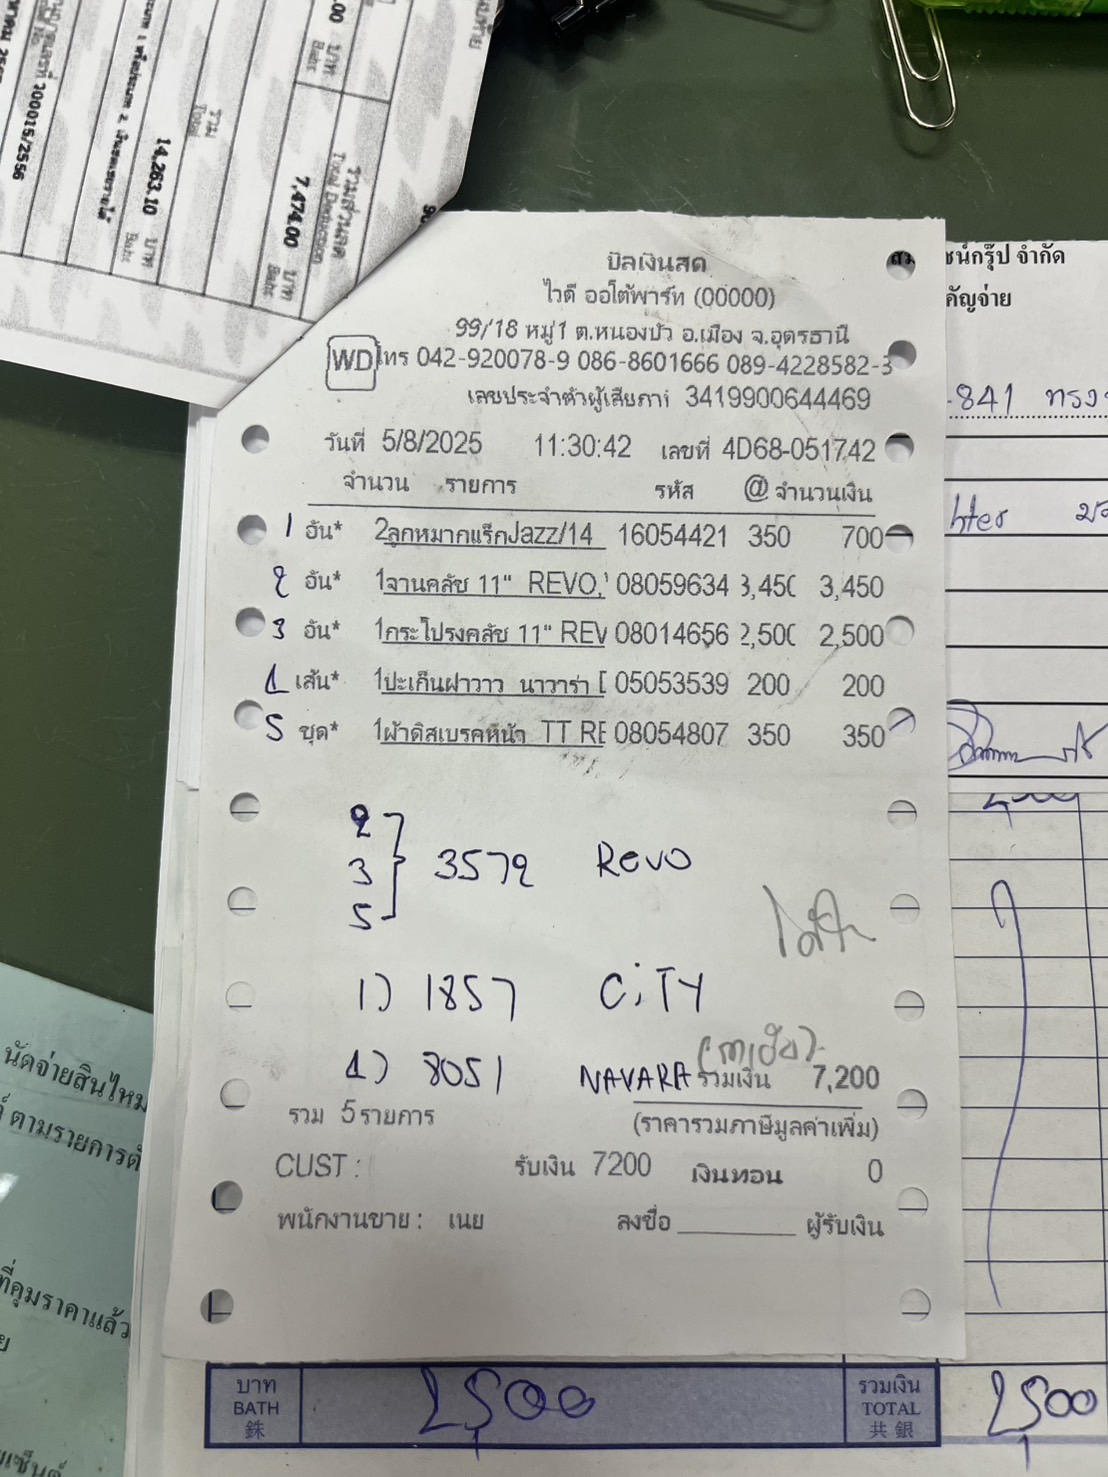 700015/2556
14,263.10 บาท
Baht
รวม
Total
7,474.00 บาท
Baht
รวมส่วนลด
Total Deduction
บิลเงินสด
ไวดี ออโต้พาร์ท (00000)
99/18 หมู่1 ต.หนองบัว อ.เมือง จ.อุดรธานี
WD โทร 042-920078-9 086-8601666 089-4228582-3
เลขประจำตัวผู้เสียภาษี 3419900644469
วันที่ 5/8/2025 11:30:42 เลขที่ 4D68-051742
จำนวน รายการ รหัส @ จำนวนเงิน
1 อัน* 2ลูกหมากแร็คJazz/14 16054421 350 700
2 อัน* 1จานคลัช 11" REVO, 08059634 3,450 3,450
3 อัน* 1กระโปรงคลัช 11" REV 08014656 2,500 2,500
4 เส้น* 1ปะเก็นฝาวาว นาวาร่า [ 05053539 200 200
5 ชุด* 1ผ้าดิสเบรคหน้า TT RE 08054807 350 350
2
3 3572 Revo
5
1) 1857 CiTY
4) 8051 NAVARA รวมเงิน 7,200
รวม 5รายการ (ราคารวมภาษีมูลค่าเพิ่ม)
CUST : รับเงิน 7200 เงินทอน 0
พนักงานขาย : เนย ลงชื่อ ผู้รับเงิน
ชน์กรุ๊ป จำกัด
คัญจ่าย
-841
นัดจ่ายสินไหม
ตามรายการ
ที่คุมราคาแล้ว
บาท
BATH
銖
2,500
รวมเงิน
TOTAL
共銀
2,500